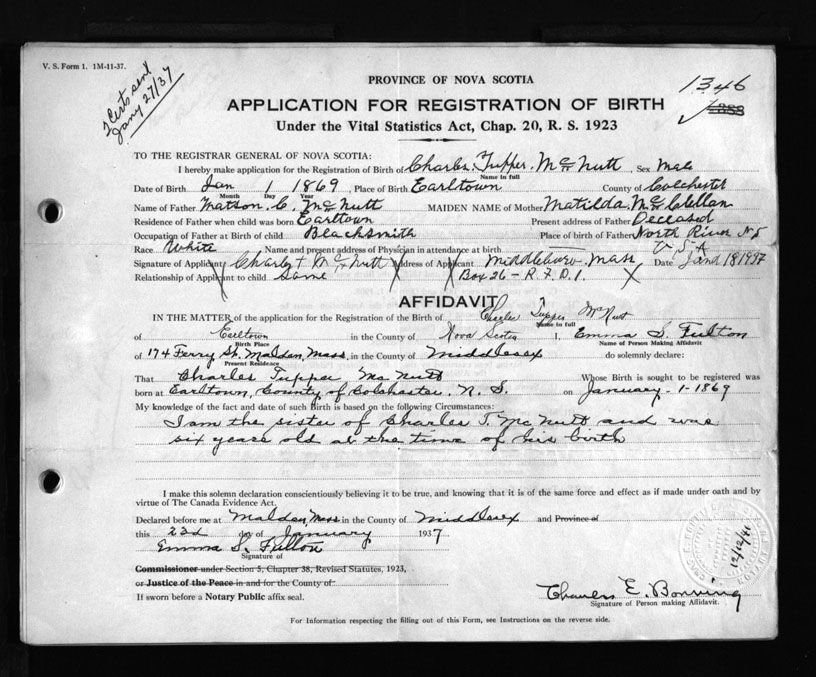 V. S. Form 1. 1M-11-37.
2 Certs sent
Jany 27/37
PROVINCE OF NOVA SCOTIA
1346
APPLICATION FOR REGISTRATION OF BIRTH
Under the Vital Statistics Act, Chap. 20, R. S. 1923
TO THE REGISTRAR GENERAL OF NOVA SCOTIA:
I hereby make application for the Registration of Birth of Charles Tupper McNutt, Sex Male
Name in full
Date of Birth Jan 1 1869, Place of Birth Earltown County of Colchester
Month Day Year
Name of Father Watson C. McNutt MAIDEN NAME of Mother Matilda McClellan
Residence of Father when child was born Earltown Present address of Father Deceased
Occupation of Father at Birth of child Blacksmith Place of birth of Father North River N.S
Race White Name and present address of Physician in attendance at birth U.S.A
Signature of Applicant Charles T McNutt Address of Applicant Middleboro Mass Date Jan 18 1937
Relationship of Applicant to child Same Box 26 - R.F.D.1.
AFFIDAVIT
IN THE MATTER of the application for the Registration of Birth of Charles Tupper McNutt
Name in full
of Earltown in the County of Nova Scotia I, Emma S. Fulton
Birth Place Name of Person Making Affidavit
of 174 Ferry St. Malden, Mass, in the County of Middlesex do solemnly declare:
Present Residence
That Charles Tupper McNutt Whose Birth is sought to be registered was
born at Earltown, County of Colchester, N. S. on January - 1 - 1869
My knowledge of the fact and date of such Birth is based on the following Circumstances:
I am the sister of Charles T. McNutt and was
six years old at the time of his birth
I make this solemn declaration conscientiously believing it to be true, and knowing that it is of the same force and effect as if made under oath and by
virtue of The Canada Evidence Act.
Declared before me at Malden, Mass in the County of Middlesex and Province of
this 23d day of January 1937
Emma S. Fulton
Signature of
Commissioner under Section 5, Chapter 38, Revised Statutes, 1923,
or Justice of the Peace in and for the County of
If sworn before a Notary Public affix seal.
12/12/41
Charles E. Bonning
Signature of Person making Affidavit.
For Information respecting the filling out of this Form, see Instructions on the reverse side.